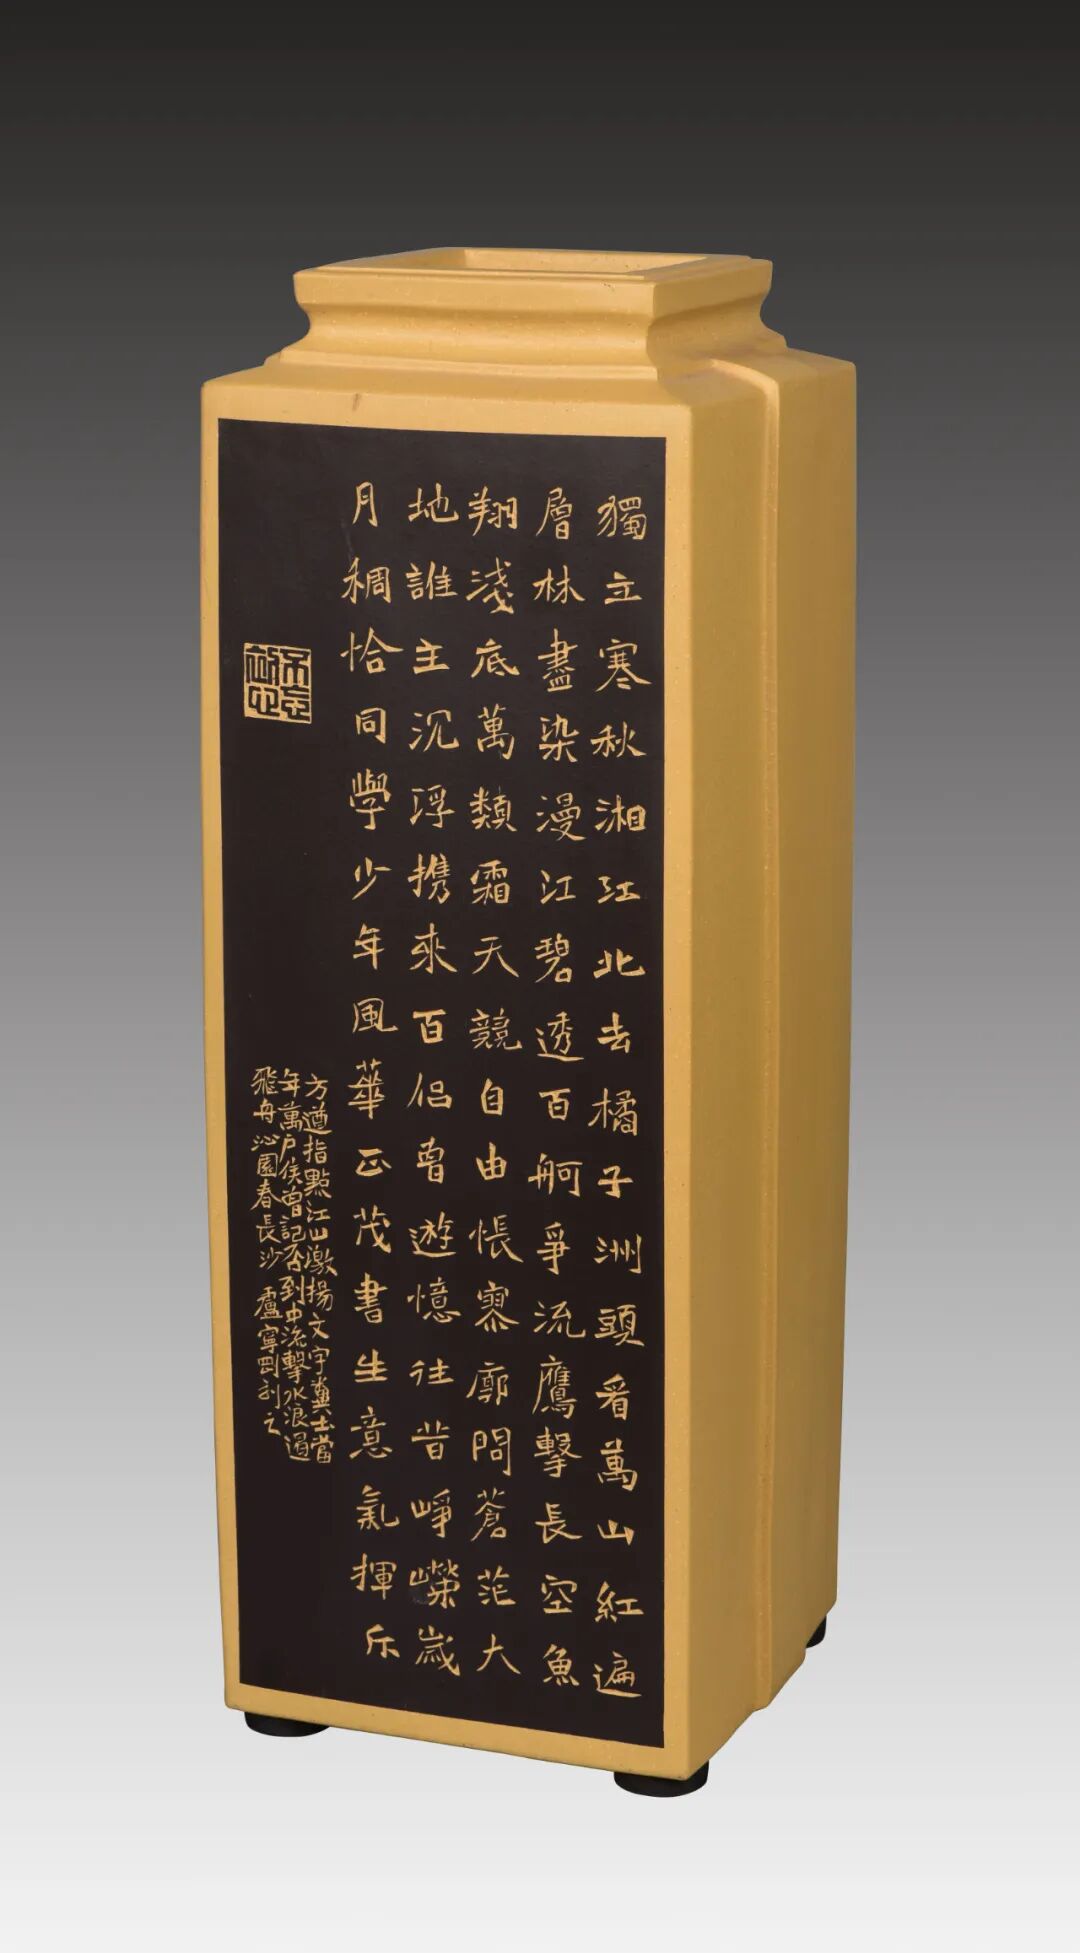 獨立寒秋湘江北去橘子洲頭看萬山紅遍
層林盡染漫江碧透百舸爭流鷹擊長空魚
翔淺底萬類霜天競自由悵寥廓問蒼茫大
地誰主沉浮携來百侣曾遊憶往昔崢嶸歲
月稠恰同學少年風華正茂書生意氣揮斥
方遒指點江山激揚文字糞土當
年萬戶侯曾記否到中流擊水浪遏
飛舟沁園春長沙 盧寧剛刻之
不忘初心